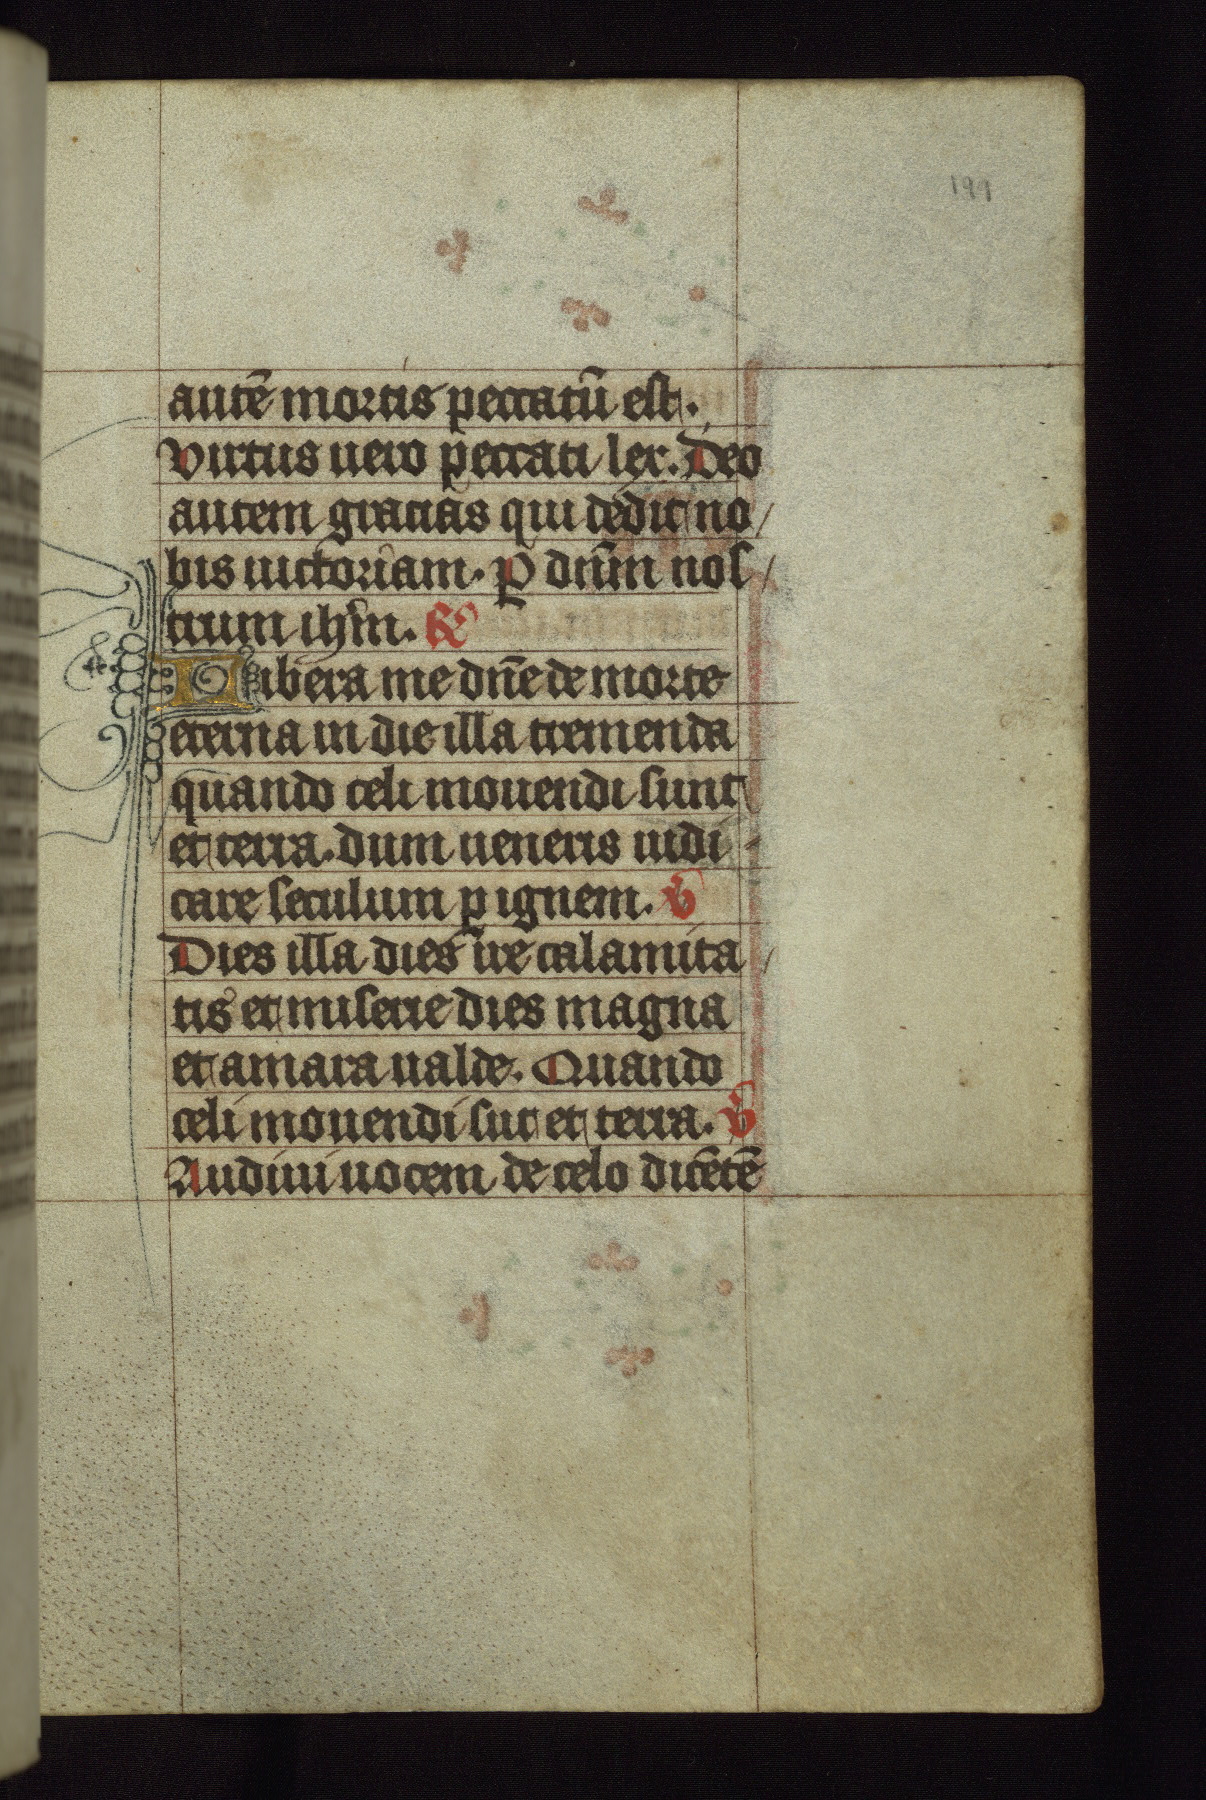 199
autē mortis peccatū est.
Virtus uero peccati lex. Deo
autem gracias qui dedit no/
bis uictoriam. ꝑ dn̄m nos/
trum ihm̄. ℟
Libera me dn̄e de morte
eterna in die illa tremenda
quando celi mouendi sunt
et terra. dum ueneris iudi
care seculum ꝑ ignem. ℣
Dies illa dies ire calamita/
tis et miserie dies magna
et amara ualde. Quando
celi mouendi sūt et terra. ℣
Audiui uocem de celo dicētē